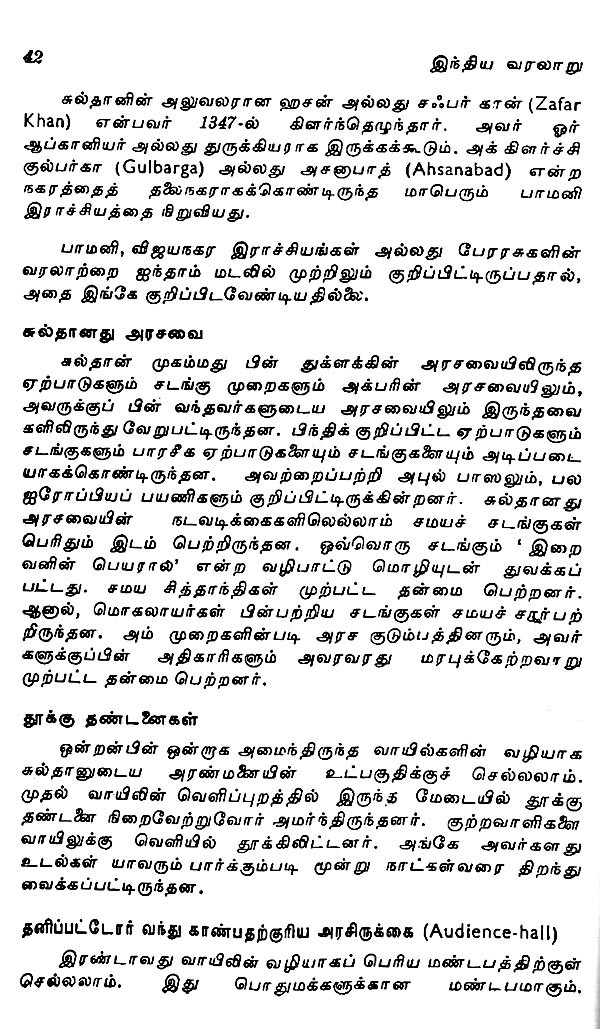 42
இந்திய வரலாறு
சுல்தானின் அலுவலரான ஹசன் அல்லது சஃபர் கான் (Zafar
Khan) என்பவர் 1347-ல் கிளர்ந்தெழுந்தார். அவர் ஓர்
ஆப்கானியர் அல்லது துருக்கியராக இருக்கக்கூடும். அக் கிளர்ச்சி
குல்பர்கா (Gulbarga) அல்லது அசனாபாத் (Ahsanabad) என்ற
நகரத்தைத் தலைநகராகக்கொண்டிருந்த மாபெரும் பாமனி
இராச்சியத்தை நிறுவியது.
பாமனி, விஜயநகர இராச்சியங்கள் அல்லது பேரரசுகளின்
வரலாற்றை ஐந்தாம் மடலில் முற்றிலும் குறிப்பிட்டிருப்பதால்,
அதை இங்கே குறிப்பிடவேண்டியதில்லை.
சுல்தானது அரசவை
சுல்தான் முகம்மது பின் துக்ளக்கின் அரசவையிலிருந்த
ஏற்பாடுகளும் சடங்கு முறைகளும் அக்பரின் அரசவையிலும்,
அவருக்குப் பின் வந்தவர்களுடைய அரசவையிலும் இருந்தவை
களிலிருந்து வேறுபட்டிருந்தன. பிந்திக் குறிப்பிட்ட ஏற்பாடுகளும்
சடங்குகளும் பாரசீக ஏற்பாடுகளையும் சடங்குகளையும் அடிப்படை
யாகக்கொண்டிருந்தன. அவற்றைப்பற்றி அபுல் பாஸலும், பல
ஐரோப்பியப் பயணிகளும் குறிப்பிட்டிருக்கின்றனர். சுல்தானது
அரசவையின் நடவடிக்கைகளிலெல்லாம் சமயச் சடங்குகள்
பெரிதும் இடம் பெற்றிருந்தன. ஒவ்வொரு சடங்கும் ‘இறை
வனின் பெயரால்’ என்ற வழிபாட்டு மொழியுடன் துவக்கப்
பட்டது. சமய சித்தாந்திகள் முற்பட்ட தன்மை பெற்றனர்.
ஆனால், மொகலாயர்கள் பின்பற்றிய சடங்குகள் சமயச் சார்பற்
றிருந்தன. அம் முறைகளின்படி அரச குடும்பத்தினரும், அவர்
களுக்குப்பின் அதிகாரிகளும் அவரவரது மரபுக்கேற்றவாறு
முற்பட்ட தன்மை பெற்றனர்.
தூக்கு தண்டனைகள்
ஒன்றன்பின் ஒன்றாக அமைந்திருந்த வாயில்களின் வழியாக
சுல்தானுடைய அரண்மனையின் உட்பகுதிக்குச் செல்லலாம்.
முதல் வாயிலின் வெளிப்புறத்தில் இருந்த மேடையில் தூக்கு
தண்டனை நிறைவேற்றுவோர் அமர்ந்திருந்தனர். குற்றவாளிகளை
வாயிலுக்கு வெளியில் தூக்கிலிட்டனர். அங்கே அவர்களது
உடல்கள் யாவரும் பார்க்கும்படி மூன்று நாட்கள்வரை திறந்து
வைக்கப்பட்டிருந்தன.
தனிப்பட்டோர் வந்து காண்பதற்குரிய அரசிருக்கை (Audience-hall)
இரண்டாவது வாயிலின் வழியாகப் பெரிய மண்டபத்திற்குள்
செல்லலாம். இது பொதுமக்களுக்கான மண்டபமாகும்.